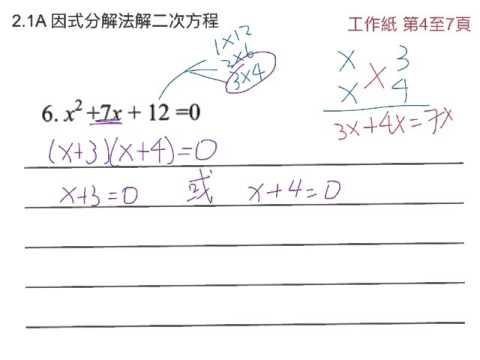 2.1A 因式分解法解二次方程
工作紙 第4至7頁
1×12
2×6
3×4
x 3
×
x 4
3x+4x=7x
6. x² +7x + 12 =0
(x+3)(x+4)=0
x+3=0 或 x+4=0